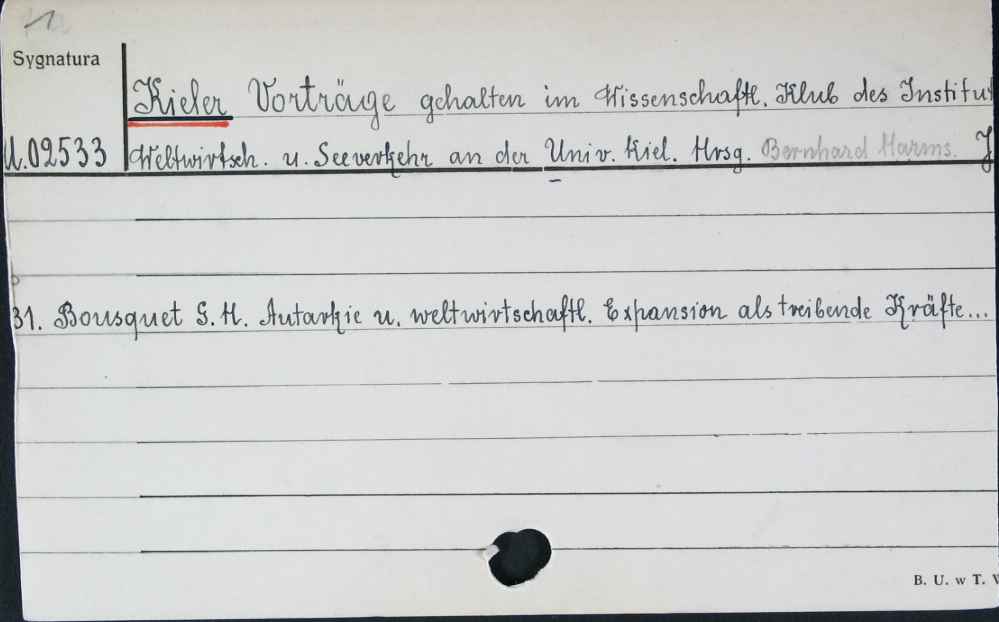 1
Sygnatura
Kieler Vorträge gehalten im Wissenschaftl. Klub des Institu
U.02533 Weltwirtsch. u. Seeverkehr an der Univ. Kiel. Hrsg. Bernhard Harms. J
31. Bousquet G. H. Autarkie u. weltwirtschaftl. Expansion als treibende Kräfte...
B. U. w T.